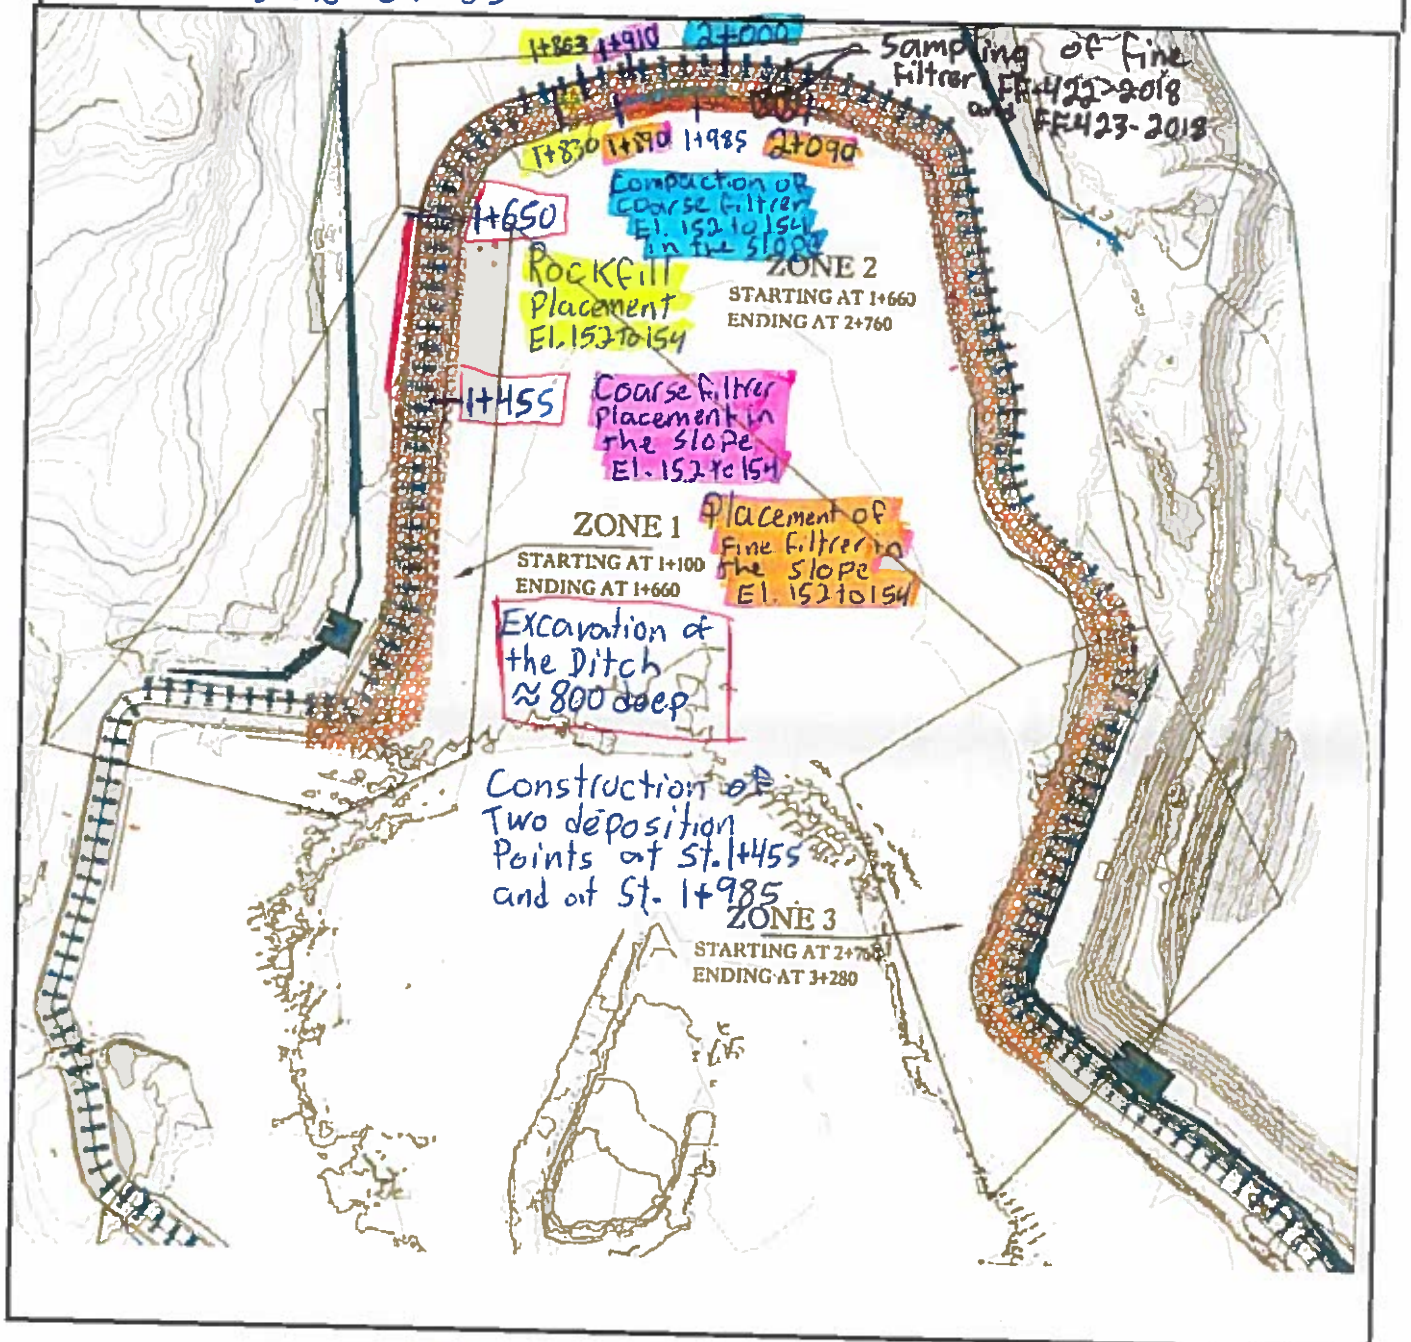 1+863 1+910 2+000
Sampling of fine
Filtrer FF-422-2018
and FF423-2018
1+830 1+890 1+985 2+090
1+650
Compaction of
Coarse Filtrer
El. 152 to 154
in the Slope
Rockfill
Placement
El. 152 To 154
ZONE 2
STARTING AT 1+660
ENDING AT 2+760
1+455
Coarse filtrer
placement in
the Slope
El. 152 to 154
ZONE 1
STARTING AT 1+100
ENDING AT 1+660
Placement of
Fine Filtrer in
the Slope
El. 152 to 154
Excavation of
the Ditch
≈ 800 deep
Construction of
Two deposition
Points at St. 1+455
and at St. 1+985.
ZONE 3
STARTING AT 2+760
ENDING AT 3+280